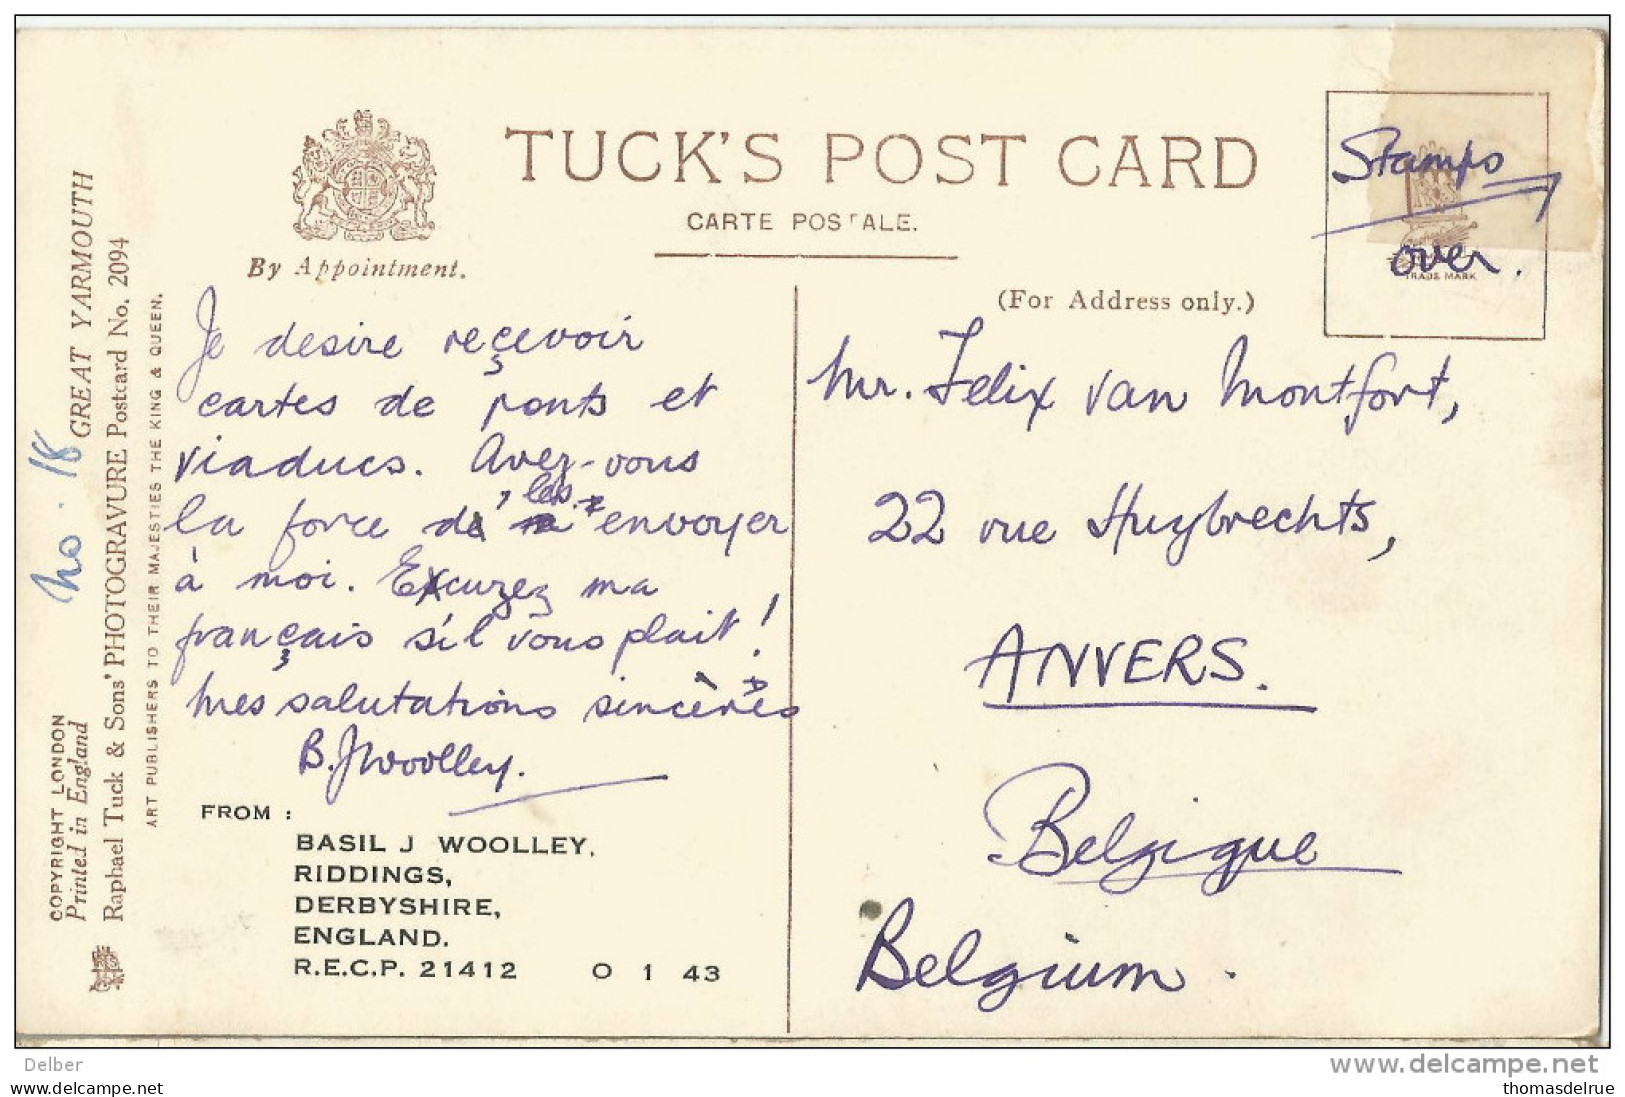 TUCK'S POST CARD
CARTE POSTALE.
By Appointment.
(For Address only.)
Stamps
over.
TRADE MARK
Je desire reçevoir
cartes de ponts et
viaducs. Avez-vous
la force de les envoyer
à moi. Excuzez ma
français s'il vous plait!
Mes salutations sincères
B. J Woolley.
FROM :
BASIL J WOOLLEY,
RIDDINGS,
DERBYSHIRE,
ENGLAND.
R.E.C.P. 21412 O 1 43
Mr. Felix van Montfort,
22 rue Huybrechts,
ANVERS.
Belgique
Belgium.
No. 18
GREAT YARMOUTH
COPYRIGHT LONDON
Printed in England
Raphael Tuck & Sons' PHOTOGRAVURE Postcard No. 2094
ART PUBLISHERS TO THEIR MAJESTIES THE KING & QUEEN.
Delber
www.delcampe.net
thomasdelrue